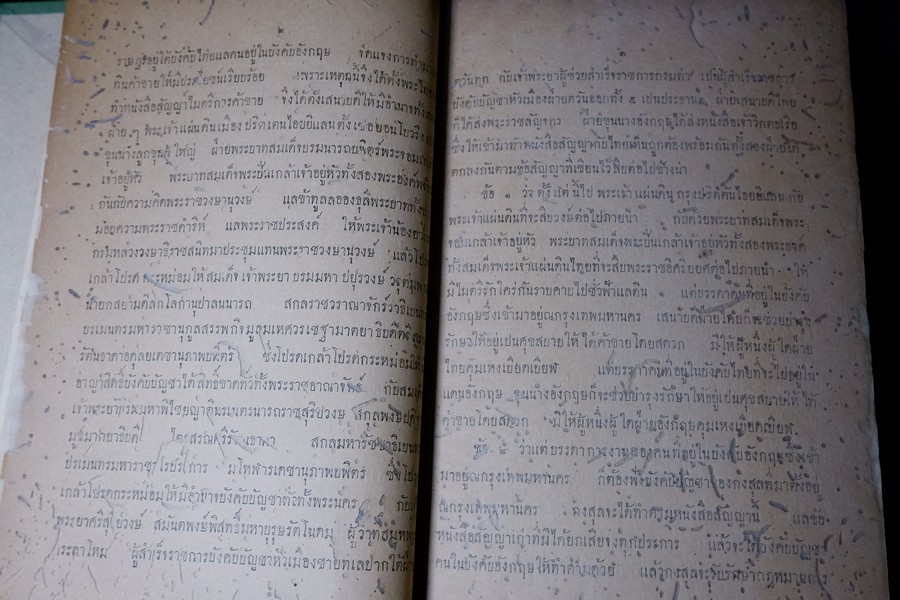 ๒
ราษฎรอยู่ใต้บังคับไทยแลคนอยู่ในบังคับอังกฤษ จัดแจงการทำมา
กินค้าขายให้มีประโยชน์เรียบร้อย เพราะเหตุฉนี้จึงได้ตั้งพระไทย
ทำหนังสือสัญญาไมตรีการค้าขาย จึงได้ตั้งเสนาบดีให้มีอำนาจทั้งสอง
ฝ่าย ๆ พระเจ้าแผ่นดินเมือง บริตเตนไอยแลนตั้ง เซอยอนโบวริง
ขุนนางลูกขุนผู้ใหญ่ ฝ่ายพระบาทสมเด็จบรมนารถบพิตร์พระจอมเกล้า
เจ้าอยู่หัว พระบาทสมเด็จพระปิ่นเกล้าเจ้าอยู่หัวทั้งสองพระองค์
กันกับความคิดพระราชวงษานุวงษ์ แลข้าทูลลอองธุลีพระบาททั้งปวง
น้อยความพระราชดำริห์ แลพระราชประสงค์ ให้พระเจ้าน้องยา
กรมหลวงวงษาธิราชสนิทมาประชุมแทนพระราชวงษานุวงษ์ แล้วโปรด
เกล้าโปรดกระหม่อมให้สมเด็จเจ้าพระยาบรมมหาปยุรวงษ์
นายกสยามดิลกโลกานุปาลนนารถ สกลราชวราณาจักร์
บรเมนทรมหาราชานุกูลสรรพกิจมูลมเหศวรเชฐามาตยาธิบดี
รัตนธาดาอดุลยเดชานุภาพบพิตร ซึ่งโปรดเกล้าโปรดกระหม่อมให้
อาญาสิทธิ์บังคับบัญชาได้สิทธิ์ขาดทั่วทั้งพระราชอาณาจักร์ กับสมเด็จ
เจ้าพระยาบรมมหาพิไชยญาติ
สกลมหารัชชาธิเบนทร์
มโหฬารเดชานุภาพบพิตร ซึ่งโปรด
เกล้าโปรดกระหม่อมให้มีอำนาจบังคับบัญชาทั่วทั้งพระนคร กับ
พระยาศรีสุริยวงษ์ สมันตพงษ์พิสุทธิ์มหาบุรุษรัตโนดม ผู้ว่าที่สมุห
พระกลาโหม ผู้สำเร็จราชการบังคับบัญชาหัวเมืองชายทเลปากใต้ฝ่าย
ตวันตก กับเจ้าพระยาผู้ช่วยสำเร็จราชการกรมท่า เปนผู้สำเร็จราชการ
บังคับบัญชาหัวเมืองฝ่ายตวันออกทั้ง ๕ เปนประธาน ฝ่ายเสนาบดีไทย
ก็ได้ส่งพระราชสัญจกร ฝ่ายขุนนางอังกฤษได้ส่งหนังสือเจ้าวิกตอเรีย
ซึ่งให้เข้ามาทำหนังสือสัญญากับไทยเห็นถูกต้องพร้อมกันทั้งสองฝ่ายได้
ตกลงกันตามข้อสัญญาที่เขียนไว้สืบต่อไปข้างน่า
ข้อ ๑ ว่า ตั้งแต่นี้ไป พระเจ้าแผ่นดินกรุงบริตตันไอยแลนด กับ
พระเจ้าแผ่นดินที่จะสืบวงษ์ต่อไปภายน่า กับด้วยพระบาทสมเด็จพระ
จอมเกล้าเจ้าอยู่หัว พระบาทสมเด็จพระปิ่นเกล้าเจ้าอยู่หัวทั้งสองพระองค์
ทั้งสมเด็จพระเจ้าแผ่นดินไทยที่จะสืบพระราชอิศริยยศต่อไปภายน่า ให้
มีไมตรีรักใคร่กันราบคาบไปชั่วฟ้าแลดิน แต่บรรดาคนที่อยู่ในบังคับ
อังกฤษซึ่งเข้ามาอยู่ณกรุงเทพมหานคร เสนาบดีฝ่ายไทยก็จะช่วยบำรุง
รักษาให้อยู่เปนศุขสบายให้ได้ค้าขายโดยสดวก มิให้ผู้หนึ่งผู้ใดฝ่าย
ไทยคุมเหงเบียดเบียฬ แต่บรรดาคนที่อยู่ในบังคับไทยที่จะไปอยู่ใน
แดนอังกฤษ ขุนนางอังกฤษก็จะช่วยบำรุงรักษาให้อยู่เปนศุขสบายให้ได้
ค้าขายโดยสดวก มิให้ผู้หนึ่งผู้ใดฝ่ายอังกฤษคุมเหงเบียดเบียฬ
ข้อ ๒ ว่าแต่บรรดาการงานของคนที่อยู่ในบังคับอังกฤษซึ่งเข้า
มาอยู่ณกรุงเทพมหานคร ก็ต้องฟังบังคับบัญชาของกงสุลที่มาตั้งอยู่
ณกรุงเทพมหานคร กงสุลจะได้ทำตามหนังสือสัญญานี้ แลข้อ
หนังสือสัญญาเก่าที่มิได้ยกเสียจงทุกประการ แล้วจะได้บังคับบัญชา
คนในบังคับอังกฤษให้ทำตามด้วย แล้วกงสุลจะรับรักษากฎหมายการ